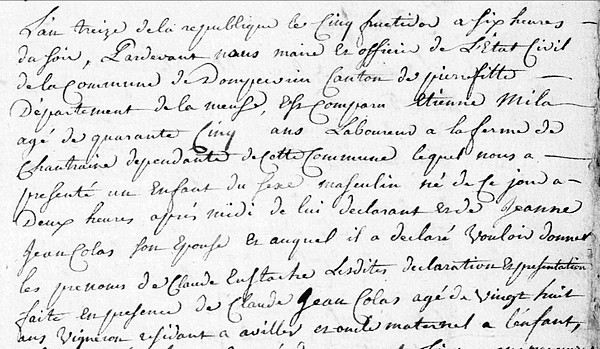 L'an treize de la republique le Cinq fructidor a six heures
du soir, Pardevant nous maire et officier de L'État Civil
de la Commune de Dompcevrin Canton de pierefitte
Département de la meuse, Est Comparu Etienne Mila
agé de quarante Cinq ans Laboureur a la ferme de
Chantraine dependante de Cette Commune lequel nous a
presenté un Enfant du sexe masculin né de Ce jour a
Deux heures après midi de lui declarant et de Jeanne
Jean Colas son Epouse et auquel il a declaré Vouloir donner
les prenoms de Claude Eustache Lesdites declaration et presentation
faite En presence de Claude Jean Colas agé de Vingt huit
ans Vigneron residant a aviller et oncle maternel a L'enfant,